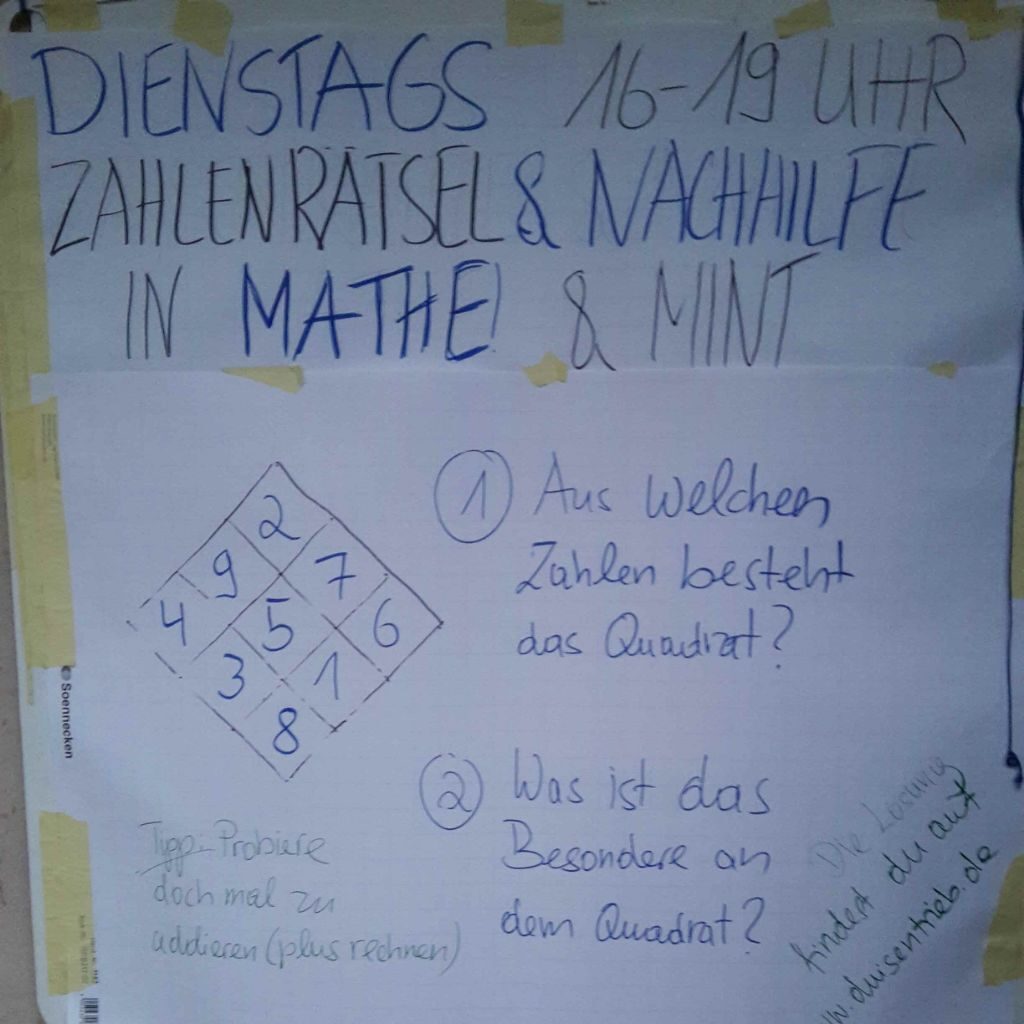 DIENSTAGS 16-19 UHR
ZAHLENRÄTSEL & NACHHILFE
IN MATHE! & MINT
2
9 7
4 5 6
3 1
8
① Aus welchen
Zahlen besteht
das Quadrat?
② Was ist das
Besondere an
dem Quadrat?
Tipp: Probiere
doch mal zu
addieren (plus rechnen)
Die Lösung
findest du auf
w.duisentrieb.de
Soennecken